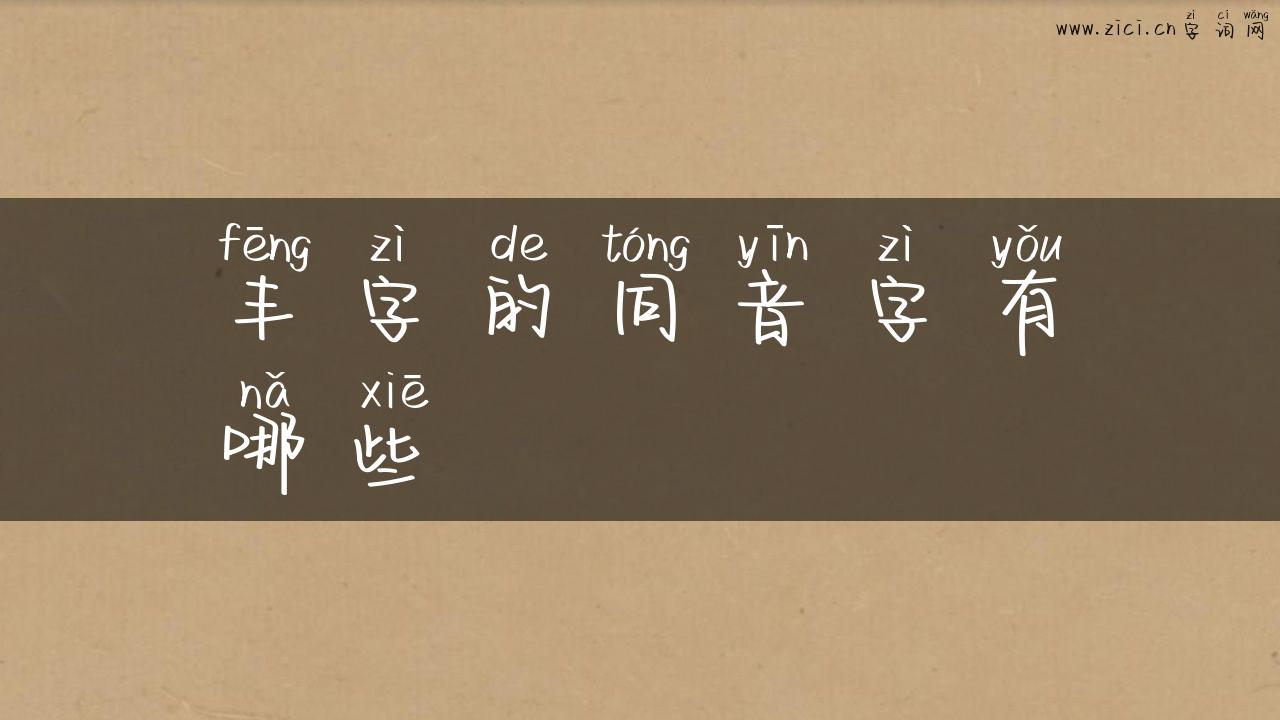 zì cí wǎng
www.zici.cn 字词网
fēng zì de tóng yīn zì yǒu
丰字的同音字有
nǎ xiē
哪些